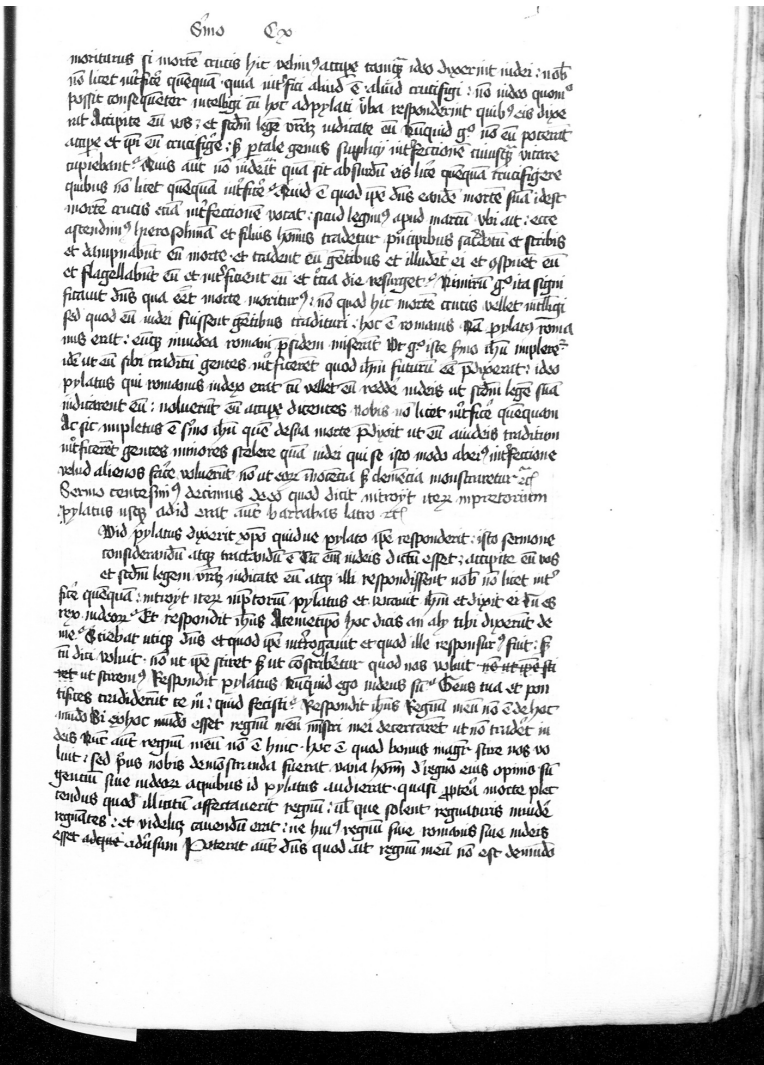 Sermo Cx
moriturus si mortē crucis hic velimꝰ accipe tamqȝ ideo dixerint iudei : nob̄
nō licet int̄fic̄e quēquā · quia int̄fici aliud ē · aliud crucifigi : nō video quomͦ
possit consequēter intelligi cū hoc ad pylati v̄ba responderint quibꝰ eis dixe
rat Accipite eū vos : et scdm̄ legē vr̄aȝ iudicate eū Nūquid gͦ nō eū poterāt
accipe et ip̄i eū crucifig̃e : sȝ p tale genus suplicij int̄fectionē cuiusqȝ vitare
cupiebant · Quis aūt nō videat quā sit absurdū eis lic̄e quēquā crucifigere
quibus nō licet quēquā int̄fic̄e · Quid ē quod ip̄e dn̄s eandē mortē suā idest
mortē crucis etiā int̄fectionē vocat : sicud legimꝰ apud marcū vbi ait : ecce
ascendimꝰ hierosolimā et filius hoīnis tradetur p̄ncipibus sacerdotū et scribis
et dampnabūt eū morte · et tradent eū gētibus et illudēt ei et ꝯspuēt eū
et flagellabūt eū et int̄ficient eū et t̄cia die resurget · Nimirū gͦ ita signi
ficauit dn̄s qua eēt morte moriturꝰ : nō quod hic mortē crucis vellet intelligi
sed quod eū iudei fuissent gētibus tradituri : hoc ē romanis Nā pylatꝰ roma
nus erat : eumqȝ in iudea romani p̄sidem miserāt Ut gͦ iste s̄mo ih̄u implere᷑
idē ut eū sibi traditū gentes int̄ficerēt quod ih̄m futurū eē p̄dixerat : ideo
pylatus qui romanus iudex erat cū vellet eū redde᷑ iudeis ut scdm̄ legē suā
iudicarent eū : noluerūt eū accipe dicentes nobis nō licet int̄fic̄e quēquam
Ac sic impletus ē s̄mo ih̄u quē de sua morte p̄dixit ut eū a iudeis traditum
int̄ficerēt gentes minores scelere quā iudei qui se isto modo ab eiꝰ int̄fectione
velud alienos fac̄e voluerūt nō ut eoȝ īnocēcia sȝ demēcia monstraretur ⁊c̄
Sermo centesimꝰ decimus de eo quod dicit introyt iteȝ in pretorium
pylatus usqȝ ad id erat aūt barrabas latro ⁊c̄
Wid pylatus dixerit xp̄o quid ue pylato ip̄e responderit : isto sermone
considerandū atqȝ tractandū ē Cū em̄ iudeis dictū esset : accipite eū vos
et scdm̄ legem vr̄aȝ iudicate eū atqȝ illi respondissent nob̄ nō licet int̄
fic̄e quēquā : introyt iteȝ in p̄toriū pylatus et vocauit ih̄m et dixit ei Tu es
rex iudeoȝ · Et respondit ih̄us A temetipō hoc dicis an alij tibi dixerūt de
me · Sciebat utiqȝ dn̄s et quod ip̄e int̄rogauit et quod ille responsurꝰ fuit : sȝ
tn̄ dici voluit · nō ut ip̄e sciret sȝ ut cōscriberetur quod nos voluit nō ut ip̄e sci
ret ut sciremꝰ Respondit pylatus Nūquid ego iudeus sū · Gens tua et pon
tifices tradiderūt te m̄ : quid fecisti · Respondit ih̄us Regnū meū nō ē de hoc
mūdo Si ex hoc mūdo esset regnū meū mīstri mei decertarēt ut nō trader̄ iu
deis Nūc aūt regnū meū nō ē hinc · hoc ē quod bonus magr̄ scire nos vo
luit : sed p̄us nobis demōstranda fuerat vana hoīm d̓ regno eius opinio siū
gentiū siue iudeoȝ a quibus id pylatus audierat · quasi ꝓpterea morte plec
tendus quod illicitū affectauerit regnū : ul̄ que solent regnaturis inuide᷑
regnātes : et videlicȝ cauendū erat : ne huiꝰ regnū siue romanis siue iudeis
esset adque adūsum Poterat aūt dn̄s quod ait regnū meū nō est de mūdo